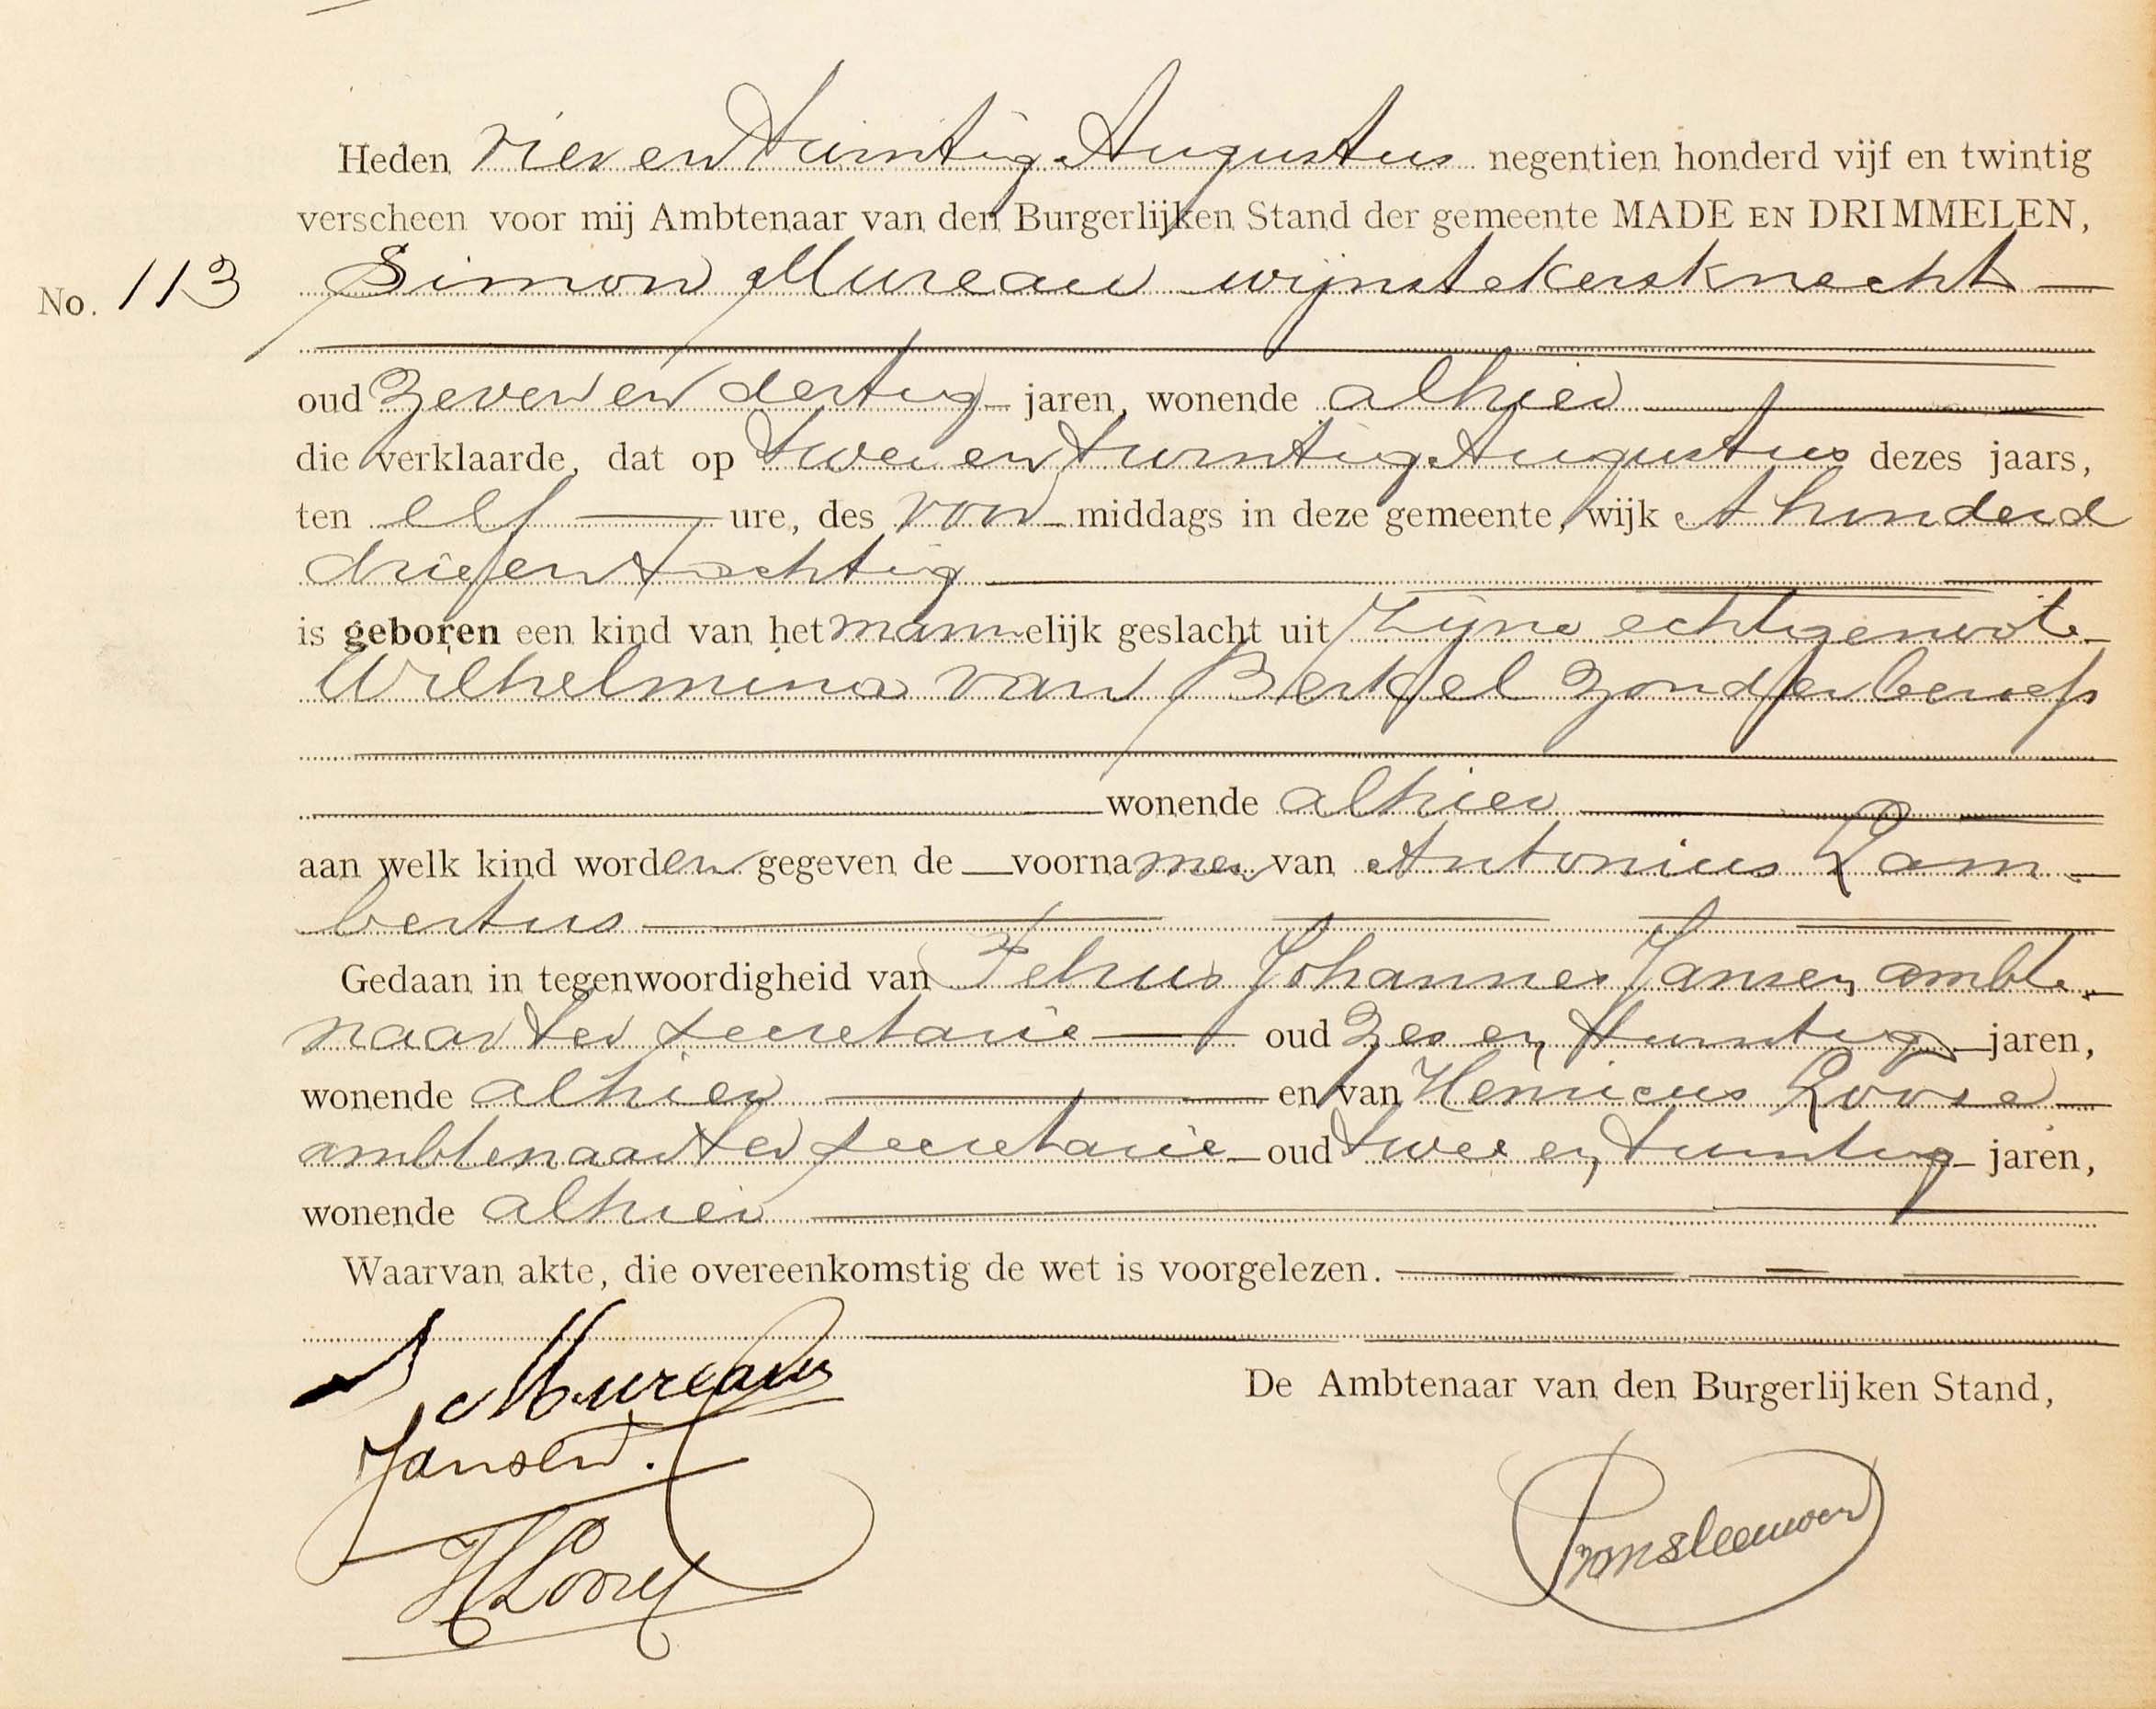 Heden vier en twintig Augustus negentien honderd vijf en twintig
verscheen voor mij Ambtenaar van den Burgerlijken Stand der gemeente MADE EN DRIMMELEN,
No. 113 Simon Mureau wijnstekersknecht
oud zeven en dertig jaren, wonende alhier
die verklaarde, dat op twee en twintig Augustus dezes jaars,
ten elf ure, des voor middags in deze gemeente, wijk A honderd
drie en tachtig
is geboren een kind van het mannelijk geslacht uit zijne echtgenoote
Wilhelmina van Berkel zonder beroep
wonende alhier
aan welk kind worden gegeven de voornamen van Antonius Lam-
bertus
Gedaan in tegenwoordigheid van Petrus Johannes Jansen, ambte-
naar ter secretarie oud zes en twintig jaren,
wonende alhier en van Henricus Loose
ambtenaar ter secretarie oud twee en twintig jaren,
wonende alhier
Waarvan akte, die overeenkomstig de wet is voorgelezen.
S Mureau
De Ambtenaar van den Burgerlijken Stand,
Jansen.